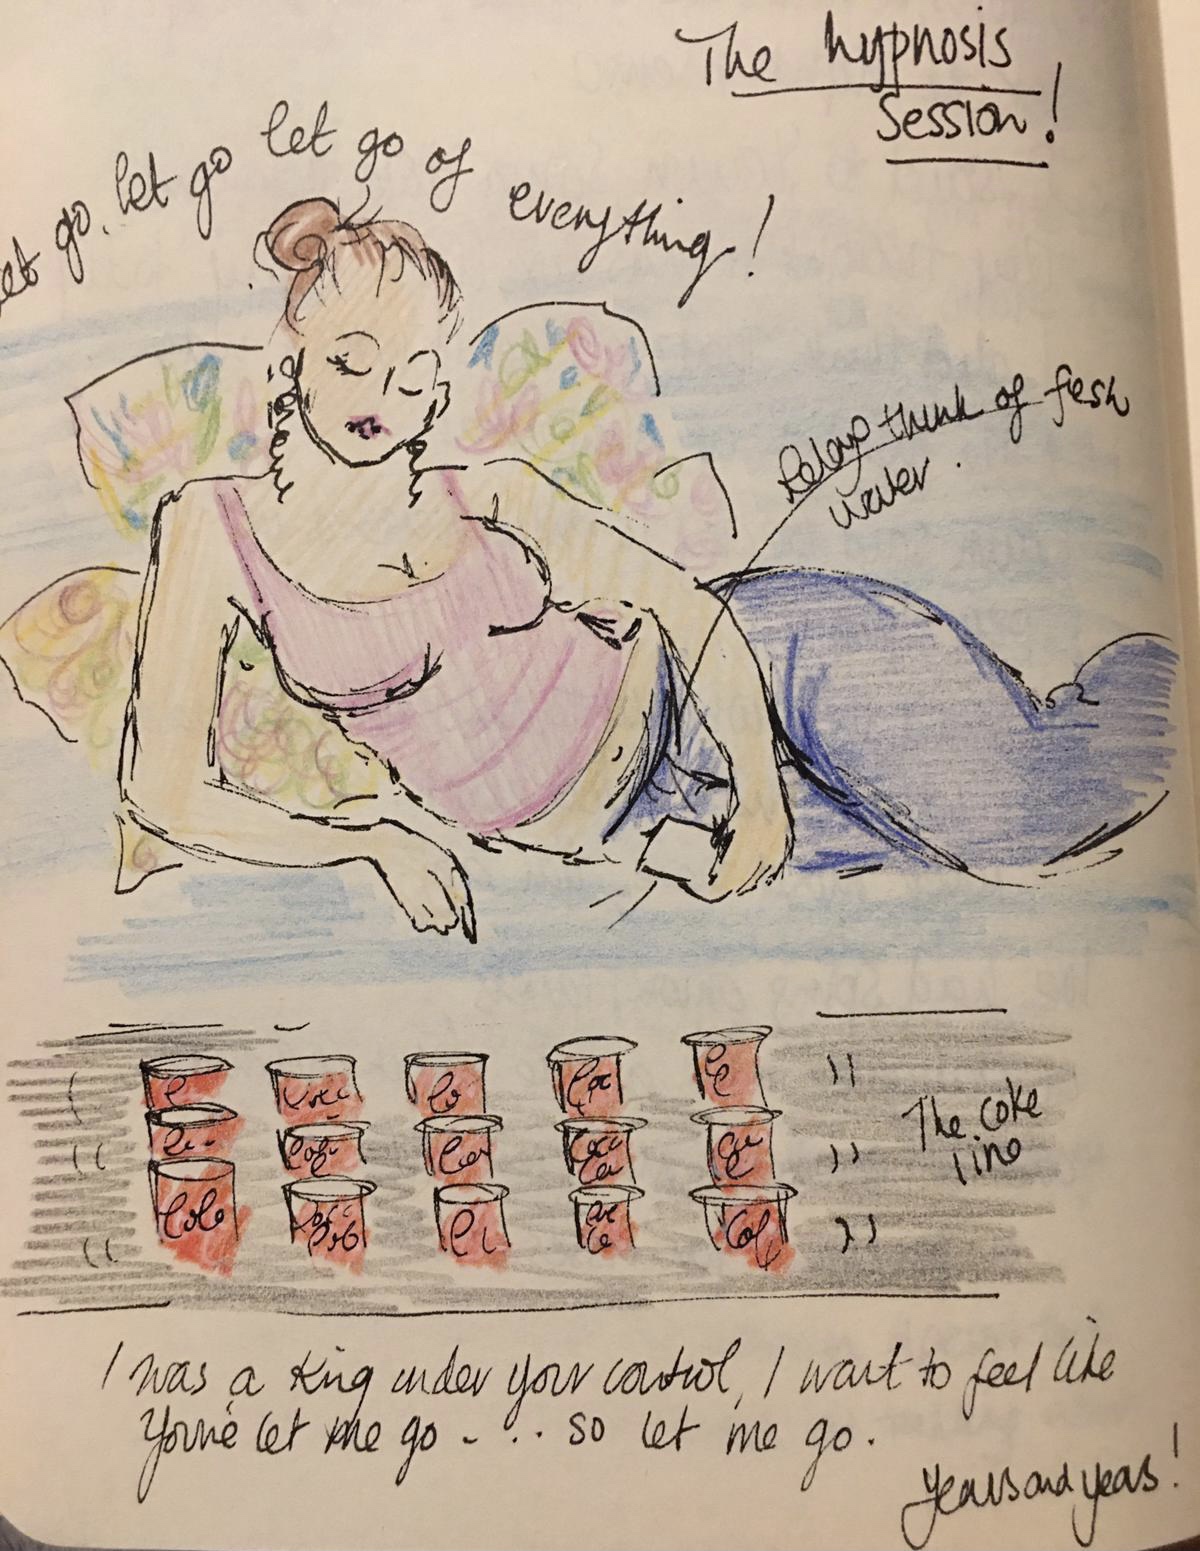 The hypnosis
Session!
let go, let go let go of everything!
Relax think of fesh
water.
The coke
line
I was a King under your control, I want to feel like
You've let me go - . . . so let me go.
Years and years!